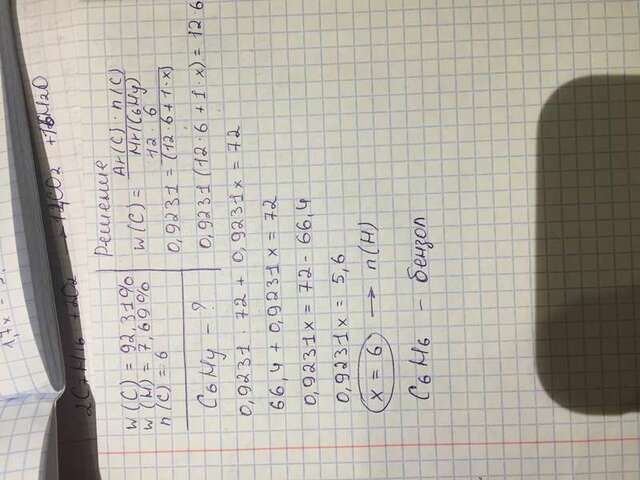 w(C) = 92,31%
w(H) = 7,69%
n(C) = 6
C6Hy - ?
Решение
w(C) = Ar(C) · n(C)
Mr(C6Hy)
12 · 6
0,9231 = (12·6+1·x)
0,9231 (12·6+1·x) = 12·6
0,9231 · 72 + 0,9231x = 72
66,4 + 0,9231x = 72
0,9231x = 72 - 66,4
0,9231x = 5,6
x = 6 → n(H)
C6H6 - бензол